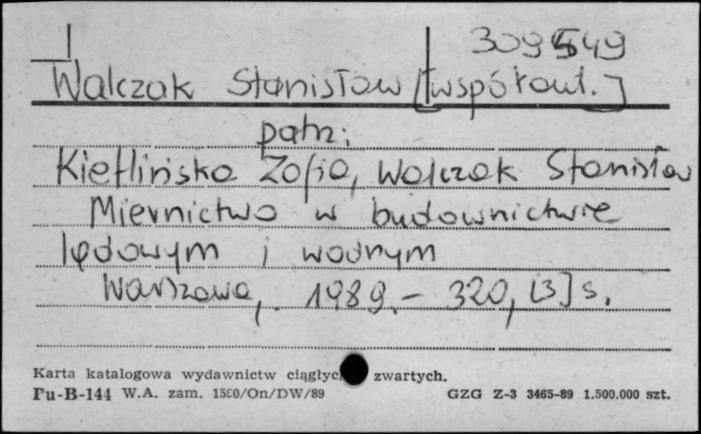 309549
Walczak Stanisław [współaut.]
patrz:
Kietlińska Zofia, Walczak Stanisław
Miernictwo w budownictwie
lądowym i wodnym
Warszawa, 1989.- 320, [3] s.
Karta katalogowa wydawnictw ciągłyc zwartych.
Pu-B-144 W.A. zam. 1560/On/DW/89 GZG Z-3 3465-89 1.500.000 szt.